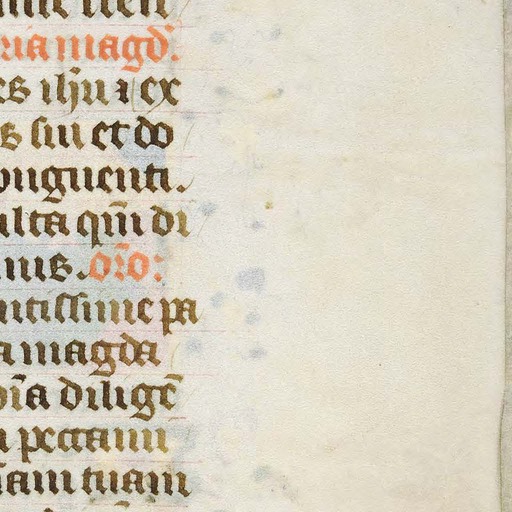 ria magd:
es ihu ⁊ ex
s sui et do
onguenti.
ulta qm̄ di
nus. or̄o:
ntissime pa
a magda
oīa diligē
a peccami
nam tuam